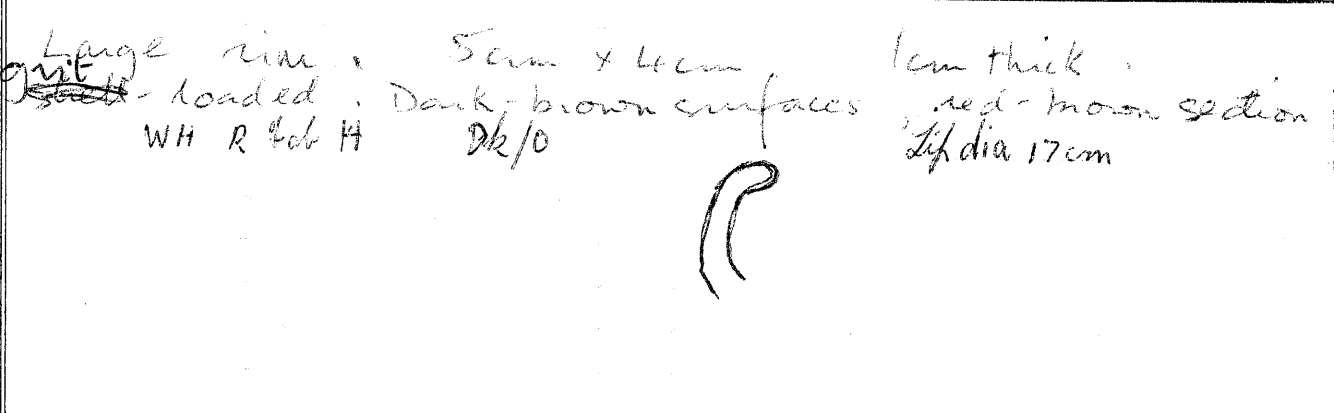 Large rim. 5cm x 4cm, 1cm thick.
grit
shell-loaded. Dark-brown surfaces, red-brown section
WH R H Dk/O Lip dia 17cm